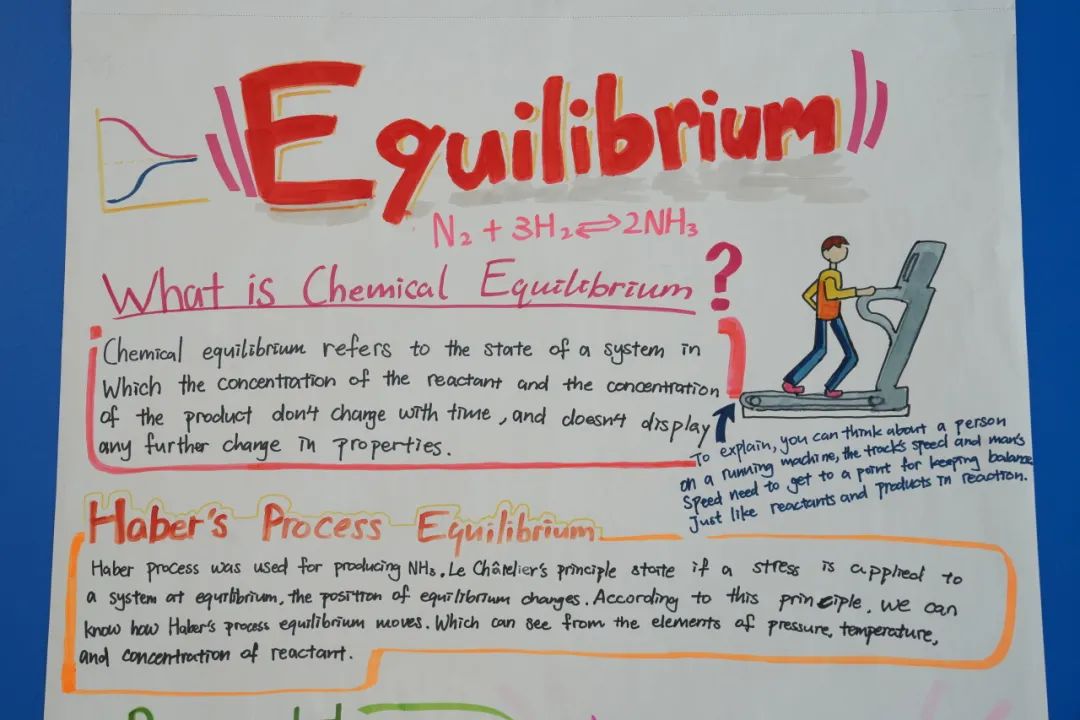 Equilibrium
N₂ + 3H₂ ⇌ 2NH₃
What is Chemical Equilibrium ?
Chemical equilibrium refers to the state of a system in
Which the concentration of the reactant and the concentration
of the product don't change with time, and doesn't display
any further change in properties.
To explain, you can think about a person
on a running machine, the track's speed and man's
Speed need to get to a point for keeping balance
Just like reactants and products in reaction.
Haber's Process Equilibrium
Haber process was used for producing NH₃. Le Châtelier's principle state if a stress is applied to
a system at equilibrium, the position of equilibrium changes. According to this principle, we can
know how Haber's process equilibrium moves. Which can see from the elements of pressure, temperature,
and concentration of reactant.